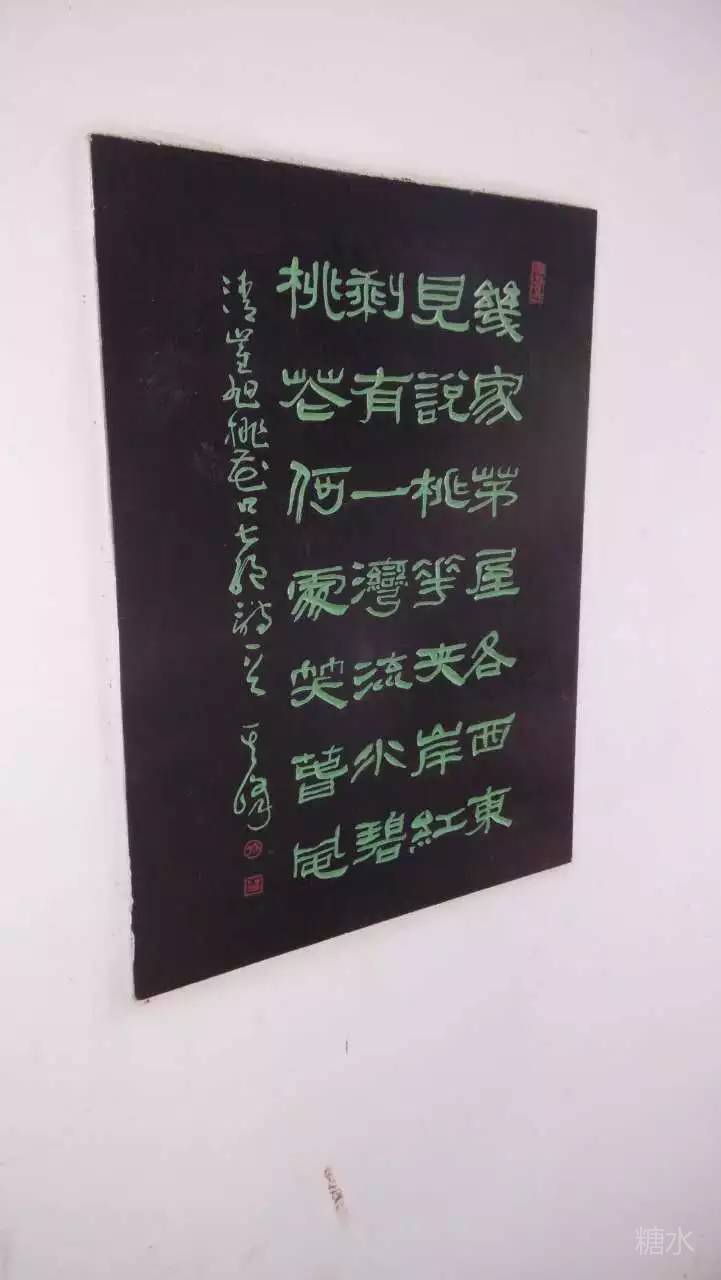 幾家茅屋各西東
見説桃華夾岸紅
剩有一灣流水碧
桃花何處笑春風
清崔旭桃花口七絶詩一首
糖水